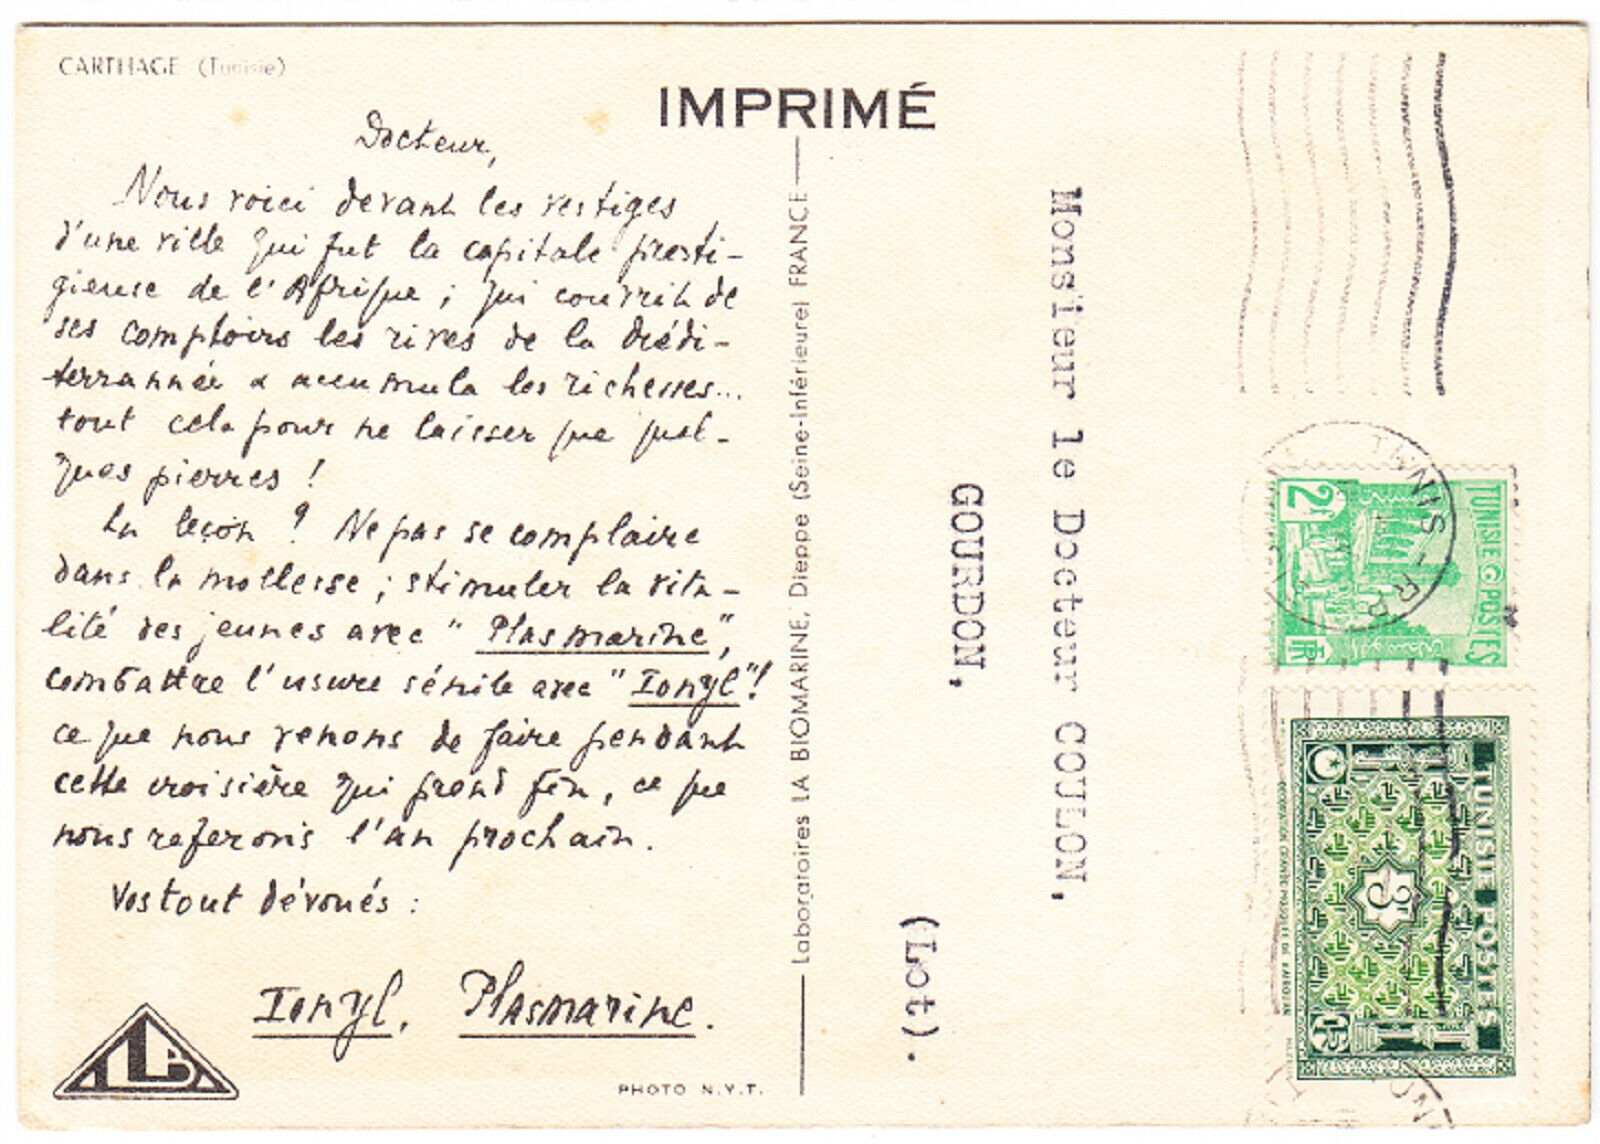 CARTHAGE (Tunisie)
IMPRIMÉ
Docteur,
Nous voici devant les vestiges
d'une ville qui fut la capitale presti-
gieuse de l'Afrique ; qui couvrit de
ses comptoirs les rives de la Médi-
terrannée & accumula les richesses...
tout cela pour ne laisser que quel-
ques pierres !
La leçon ? Ne pas se complaire
dans la mollesse ; stimuler la vita-
lité des jeunes avec "Plasmarine",
combattre l'usure sénile avec "Ionyl"!
ce que nous venons de faire pendant
cette croisière qui prend fin, ce que
nous referons l'an prochain.
Vos tout dévoués :
Ionyl, Plasmarine.
PHOTO N.Y.T.
Laboratoires LA BIOMARINE, Dieppe (Seine-Inférieure) FRANCE
Monsieur le Docteur COULON,
GOURDON,
(Lot).
TUNIS-R.P
TUNISIE POSTES
2F
RF
TUNISIE POSTES
3F
RF